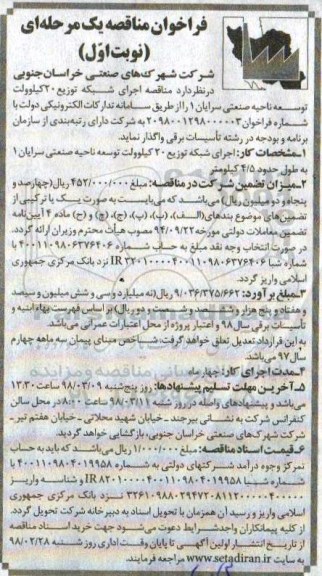 فراخوان مناقصه یک مرحله‌ای
(نوبت اول)
شرکت شهرک‌های صنعتی خراسان جنوبی
در نظر دارد مناقصه اجرای شبکه توزیع ۲۰ کیلوولت
توسعه ناحیه صنعتی سرایان ۱ را از طریق سامانه تدارکات الکترونیکی دولت با
شماره فراخوان ۲۰۹۸۰۰۱۲۹۸۰۰۰۰۰۳ به شرکت دارای رتبه‌بندی از سازمان
برنامه و بودجه در رشته تأسیسات برقی واگذار نماید.
۱ـ مشخصات کار: اجرای شبکه توزیع ۲۰ کیلوولت توسعه ناحیه صنعتی سرایان ۱
به طول حدود ۴/۵ کیلومتر
۲ـ میزان تضمین شرکت در مناقصه: مبلغ ۴۵۲/۰۰۰/۰۰۰ ریال (چهارصد و
پنجاه و دو میلیون ریال) می‌باشد که می‌بایست به صورت یک یا ترکیبی از
تضمین‌های موضوع بندهای (الف)، (ب)، (پ)، (ج)، (چ) و (ح) ماده ۴ آیین‌نامه
تضمین معاملات دولتی مورخه ۹۴/۰۹/۲۲ مصوب هیأت محترم وزیران ارائه گردد.
در صورت انتخاب وجه نقد مبلغ به حساب شماره ۴۰۰۱۱۰۹۸۰۶۳۷۶۴۰۶ با
شماره شبا IR۳۲۰۱۰۰۰۰۴۰۰۱۱۰۹۸۰۶۳۷۶۴۰۶ نزد بانک مرکزی جمهوری
اسلامی واریز گردد.
۳ـ مبلغ برآورد: ۹/۰۳۶/۳۷۵/۶۶۲ ریال (نه میلیارد و سی و شش میلیون و سیصد
و هفتاد و پنج هزار و ششصد و شصت و دو ریال) بر اساس فهرست بهاء ابنیه و
تأسیسات برقی سال ۹۸ و اعتبار پروژه از محل اعتبارات عمرانی می‌باشد.
به این قرارداد تعدیل تعلق خواهد گرفت: شاخص مبنای پیمان سه ماهه چهارم
سال ۹۷ می‌باشد.
۴ـ مدت اجرای کار: چهار ماه
۵ـ آخرین مهلت تسلیم پیشنهادها: روز پنج‌شنبه ۹۸/۰۳/۰۹ ساعت ۱۳:۳۰
می‌باشد و پیشنهادهای واصله در روز شنبه ۹۸/۰۳/۱۱ ساعت ۸:۰۰ در محل سالن
کنفرانس شرکت به نشانی بیرجند ـ خیابان شهید محلاتی ـ خیابان هفتم تیر ـ
شرکت شهرک‌های صنعتی خراسان جنوبی، بازگشایی خواهد گردید.
۶ـ قیمت اسناد مناقصه: مبلغ ۱/۰۰۰/۰۰۰ ریال می‌باشد که باید به حساب
تمرکز وجوه درآمد شرکتهای دولتی به شماره ۴۰۰۱۱۰۹۸۰۴۰۱۹۹۵۸ با
شماره شبا IR۸۲۰۱۰۰۰۰۴۰۰۱۱۰۹۸۰۴۰۱۹۹۵۸ و شناسه واریز
نزد بانک مرکزی جمهوری
اسلامی واریز و رسید آن همزمان با تحویل اسناد به دبیرخانه شرکت تحویل گردد.
از کلیه پیمانکاران واجد شرایط دعوت می‌شود جهت خرید اسناد مناقصه
از تاریخ انتشار اولین آگهی تا پایان وقت اداری روز شنبه ۹۸/۰۲/۲۸
به سایت www.setadiran.ir مراجعه فرمایند.